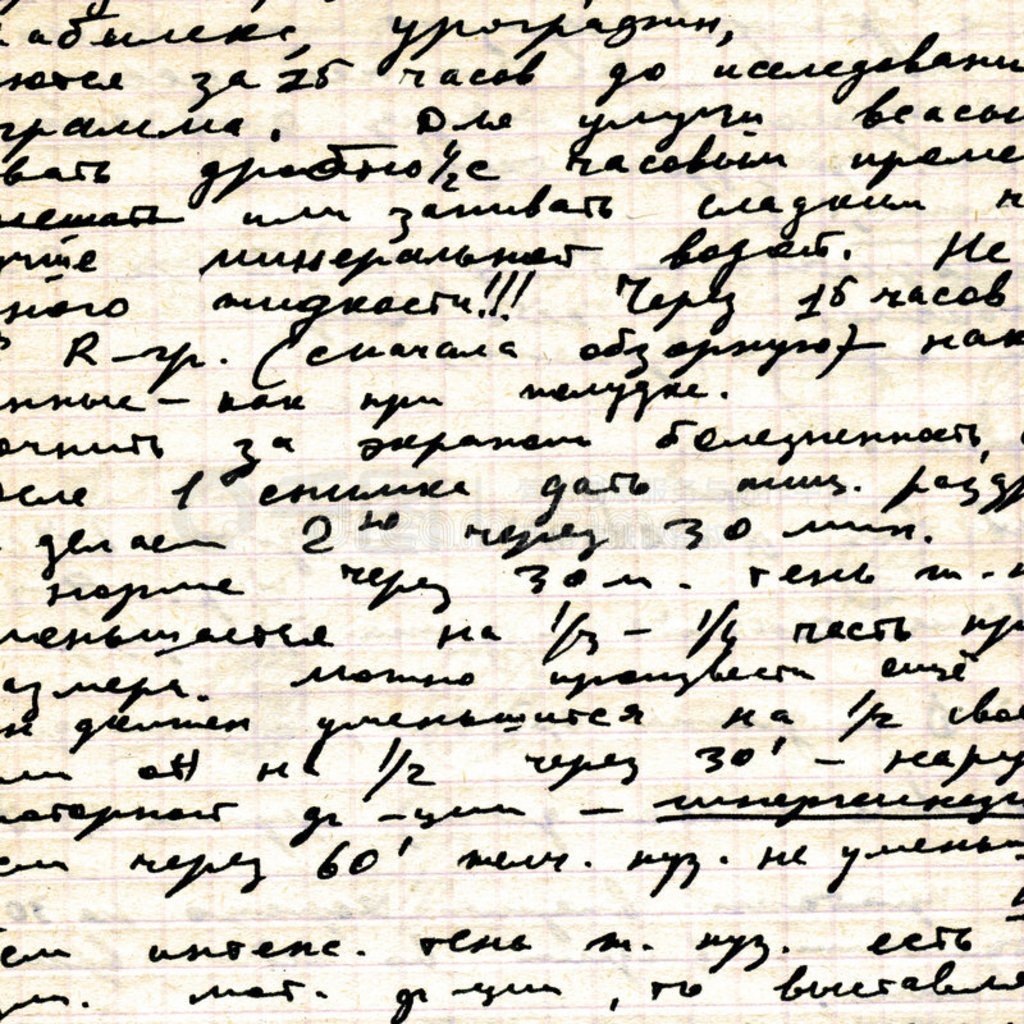 урографин,
ются за 15 часов до исследовани
грамма. Для улучш всасы
вать дробно ½ с часовым проме
мешать или запивать сладким ч
учше минеральной водой. Не
ного жидкости!!! Через 15 часов
R-гр. (сначала обзорную) нак
нные – как при желудке.
очнить за экраном болезненность,
осле 1 снимка дать пищ. раздр
делаем 2ую через 30 мин.
норме через 30 м. тень ж. п
меньшается на 1/3 – 1/4 часть пр
азмера. Можно произвести ещё
н должен уменьшится на 1/2 сво
он на 1/2 через 30' – нару
моторной ф-ции –
через 60' желч. пуз. не уменьш
интенс. тень ж. пуз. есть
мот. ф-ции, то выставля